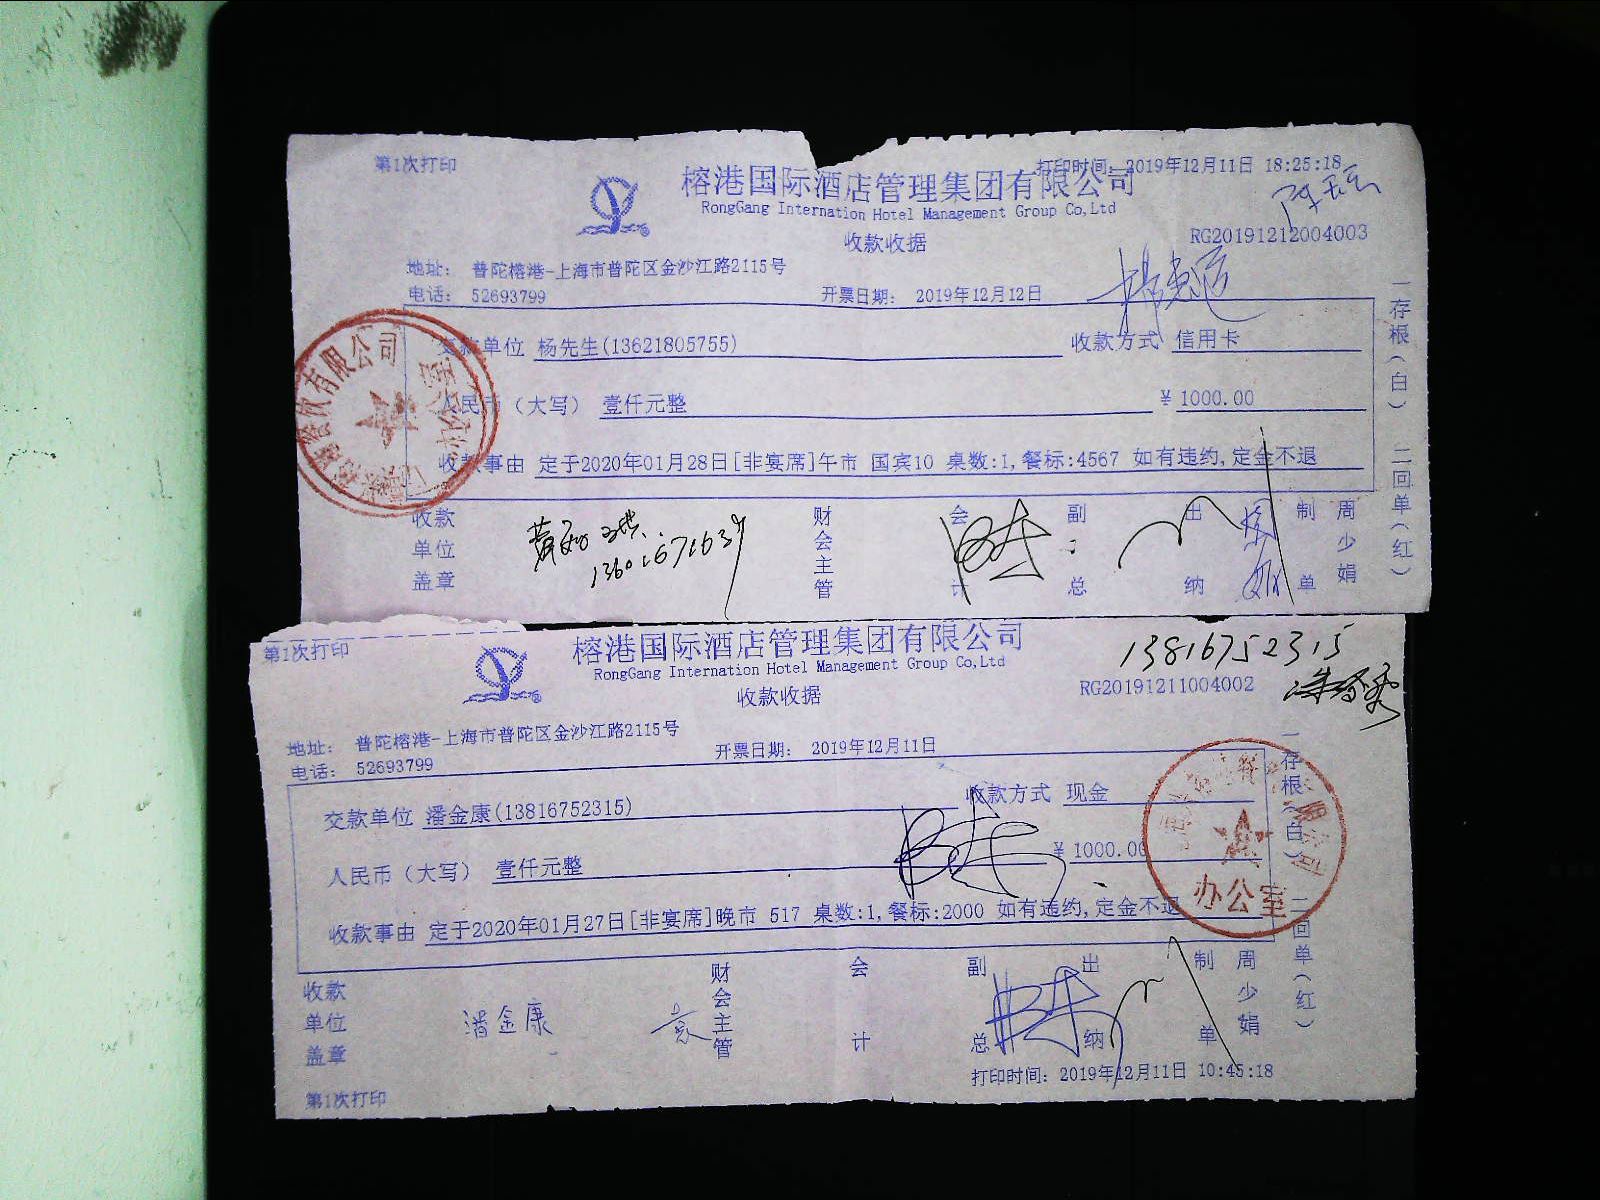 第1次打印
打印时间：2019年12月11日 18:25:18
榕港国际酒店管理集团有限公司
RongGang Internation Hotel Management Group Co,Ltd
收款收据
RG20191212004003
地址： 普陀榕港-上海市普陀区金沙江路2115号
电话： 52693799
开票日期： 2019年12月12日
交款单位 杨先生(13621805755) 收款方式 信用卡
人民币（大写） 壹仟元整 ¥ 1000.00
收款事由 定于2020年01月28日[非宴席]午市 国宾10 桌数:1,餐标:4567 如有违约,定金不退
收款单位盖章 财会主管 会计 副总 出纳 制单 周少娟
一存根（白） 二回单（红）
有限公司
第1次打印
榕港国际酒店管理集团有限公司
RongGang Internation Hotel Management Group Co,Ltd
收款收据
13816752315
RG20191211004002
地址： 普陀榕港-上海市普陀区金沙江路2115号
电话： 52693799
开票日期： 2019年12月11日
交款单位 潘金康(13816752315) 收款方式 现金
人民币（大写） 壹仟元整 ¥ 1000.00
收款事由 定于2020年01月27日[非宴席]晚市 517 桌数:1,餐标:2000 如有违约,定金不退
办公室
收款单位盖章 潘金康 财会主管 会计 副总 出纳 制单 周少娟
一存根（白） 二回单（红）
打印时间：2019年12月11日 10:45:18
第1次打印